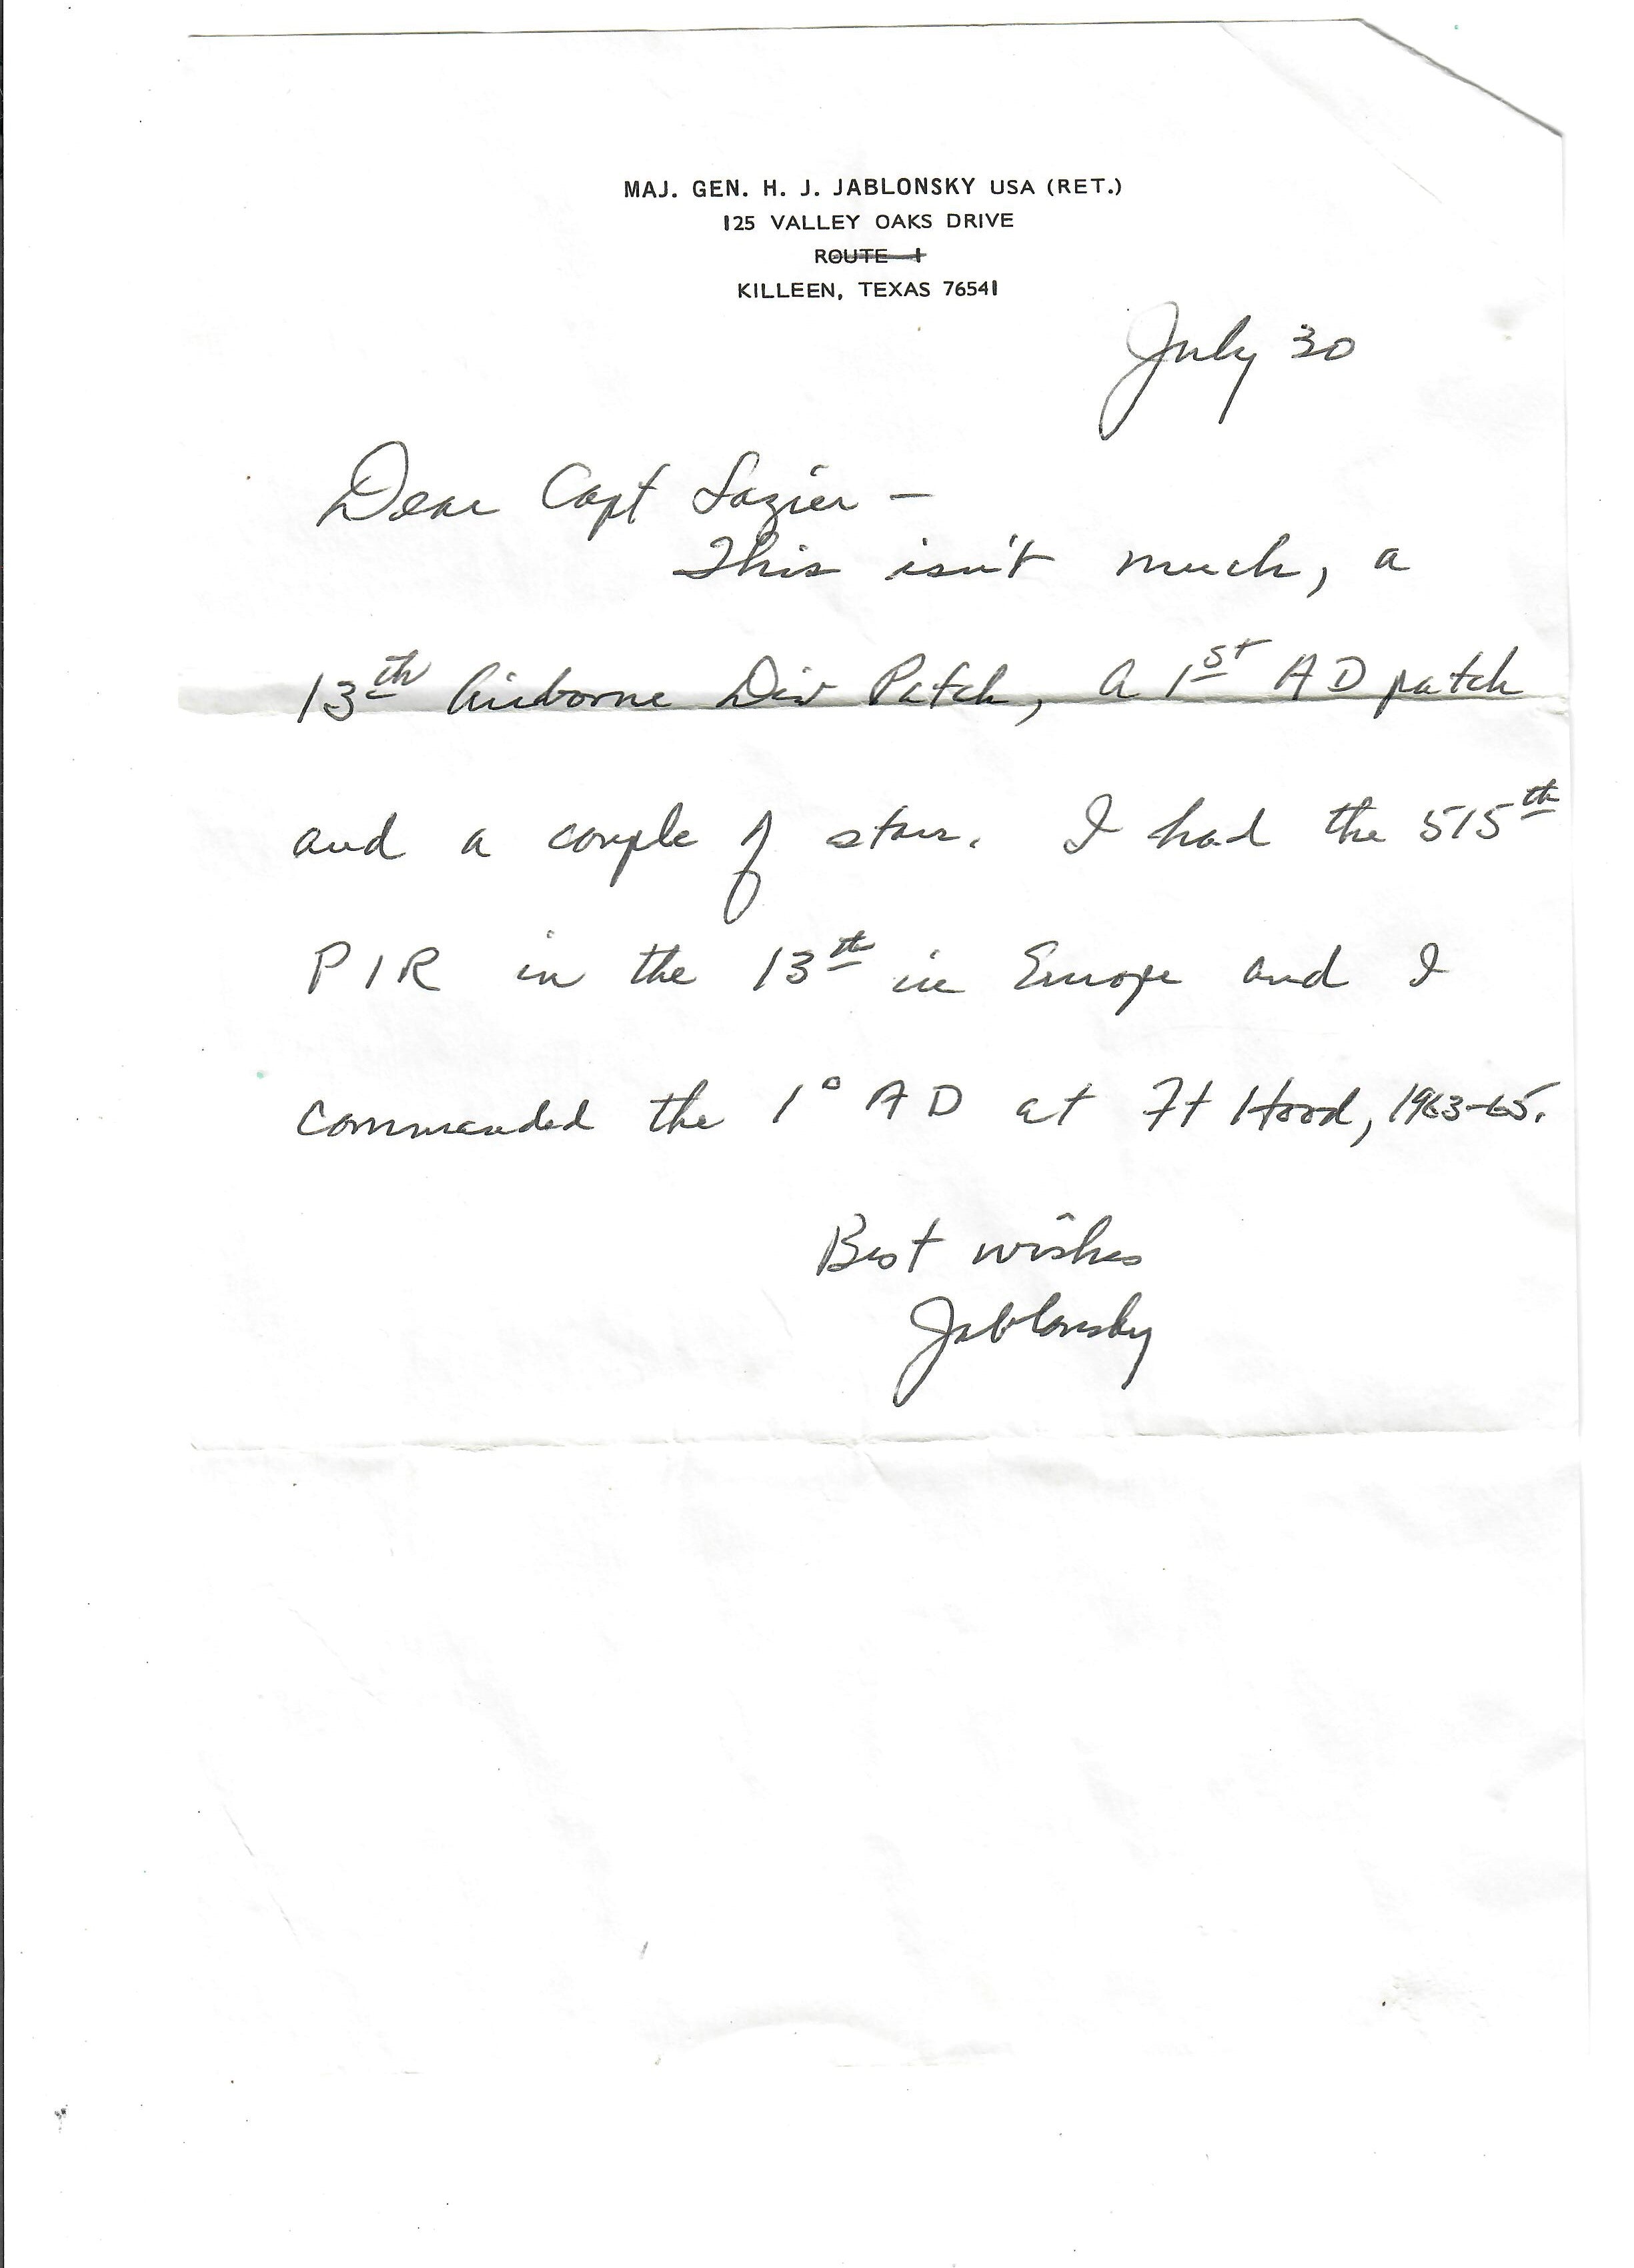 MAJ. GEN. H. J. JABLONSKY USA (RET.)
125 VALLEY OAKS DRIVE
ROUTE 1
KILLEEN, TEXAS 76541
July 30
Dear Capt Lazier —
This isn't much, a
13th Airborne Div Patch, a 1st AD patch
and a couple of stars. I had the 515th
PIR in the 13th in Europe and I
commanded the 1° AD at Ft Hood, 1963-65.
Best wishes
Jablonsky